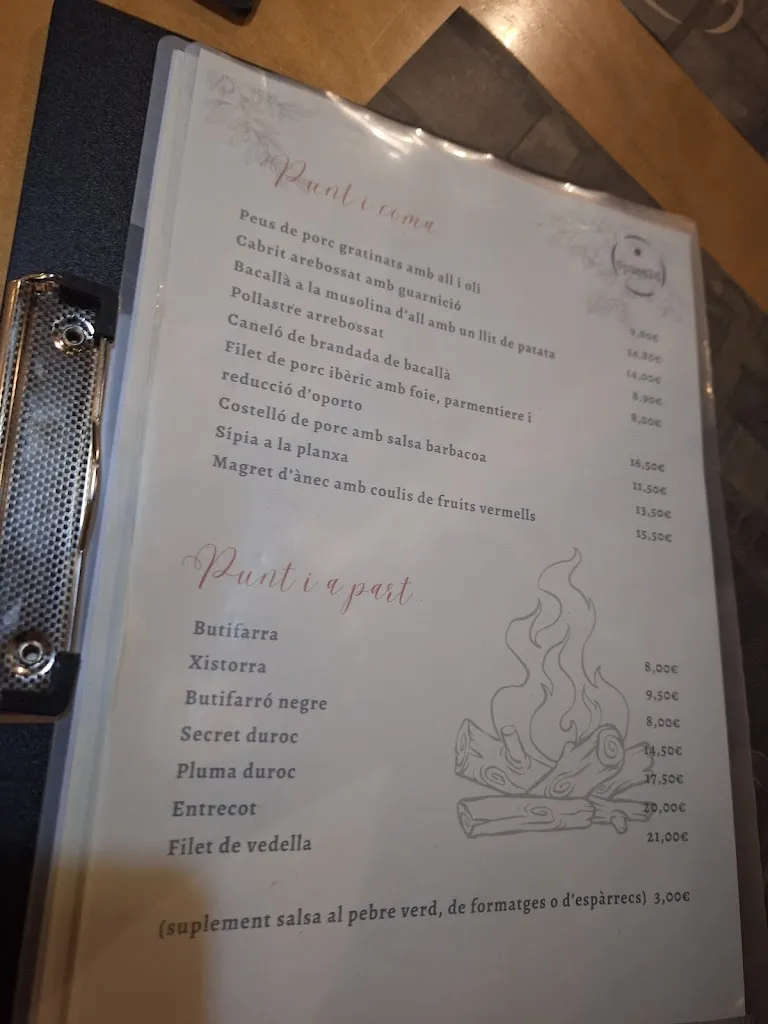 Punt i coma
Peus de porc gratinats amb all i oli
Cabrit arebossat amb guarnició 16,80€
Bacallà a la musolina d'all amb un llit de patata 14,00€
Pollastre arrebossat 8,90€
Caneló de brandada de bacallà 8,00€
Filet de porc ibèric amb foie, parmentiere i
reducció d'oporto 16,50€
Costelló de porc amb salsa barbacoa 11,50€
Sípia a la planxa 13,50€
Magret d'ànec amb coulis de fruits vermells 15,50€
Punt i a part
Butifarra 8,00€
Xistorra 9,50€
Butifarró negre 8,00€
Secret duroc 14,50€
Pluma duroc 17,50€
Entrecot 20,00€
Filet de vedella 21,00€
(suplement salsa al pebre verd, de formatges o d'espàrrecs) 3,00€